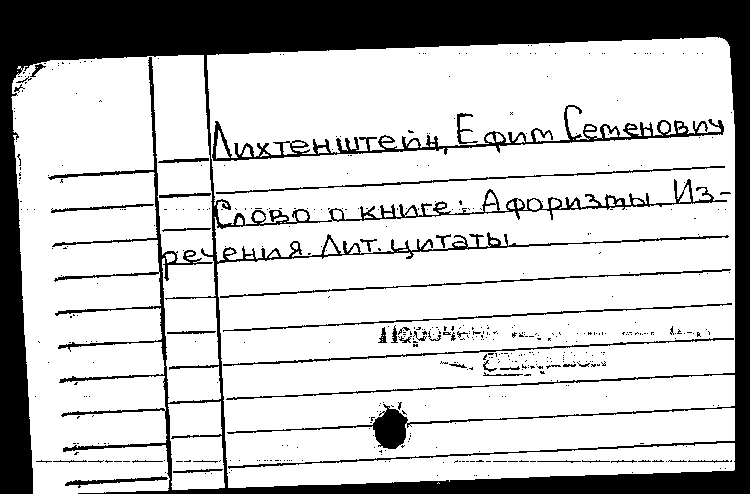 Лихтенштейн, Ефим Семенович
Слово о книге: Афоризмы. Из-
речения. Лит. цитаты.